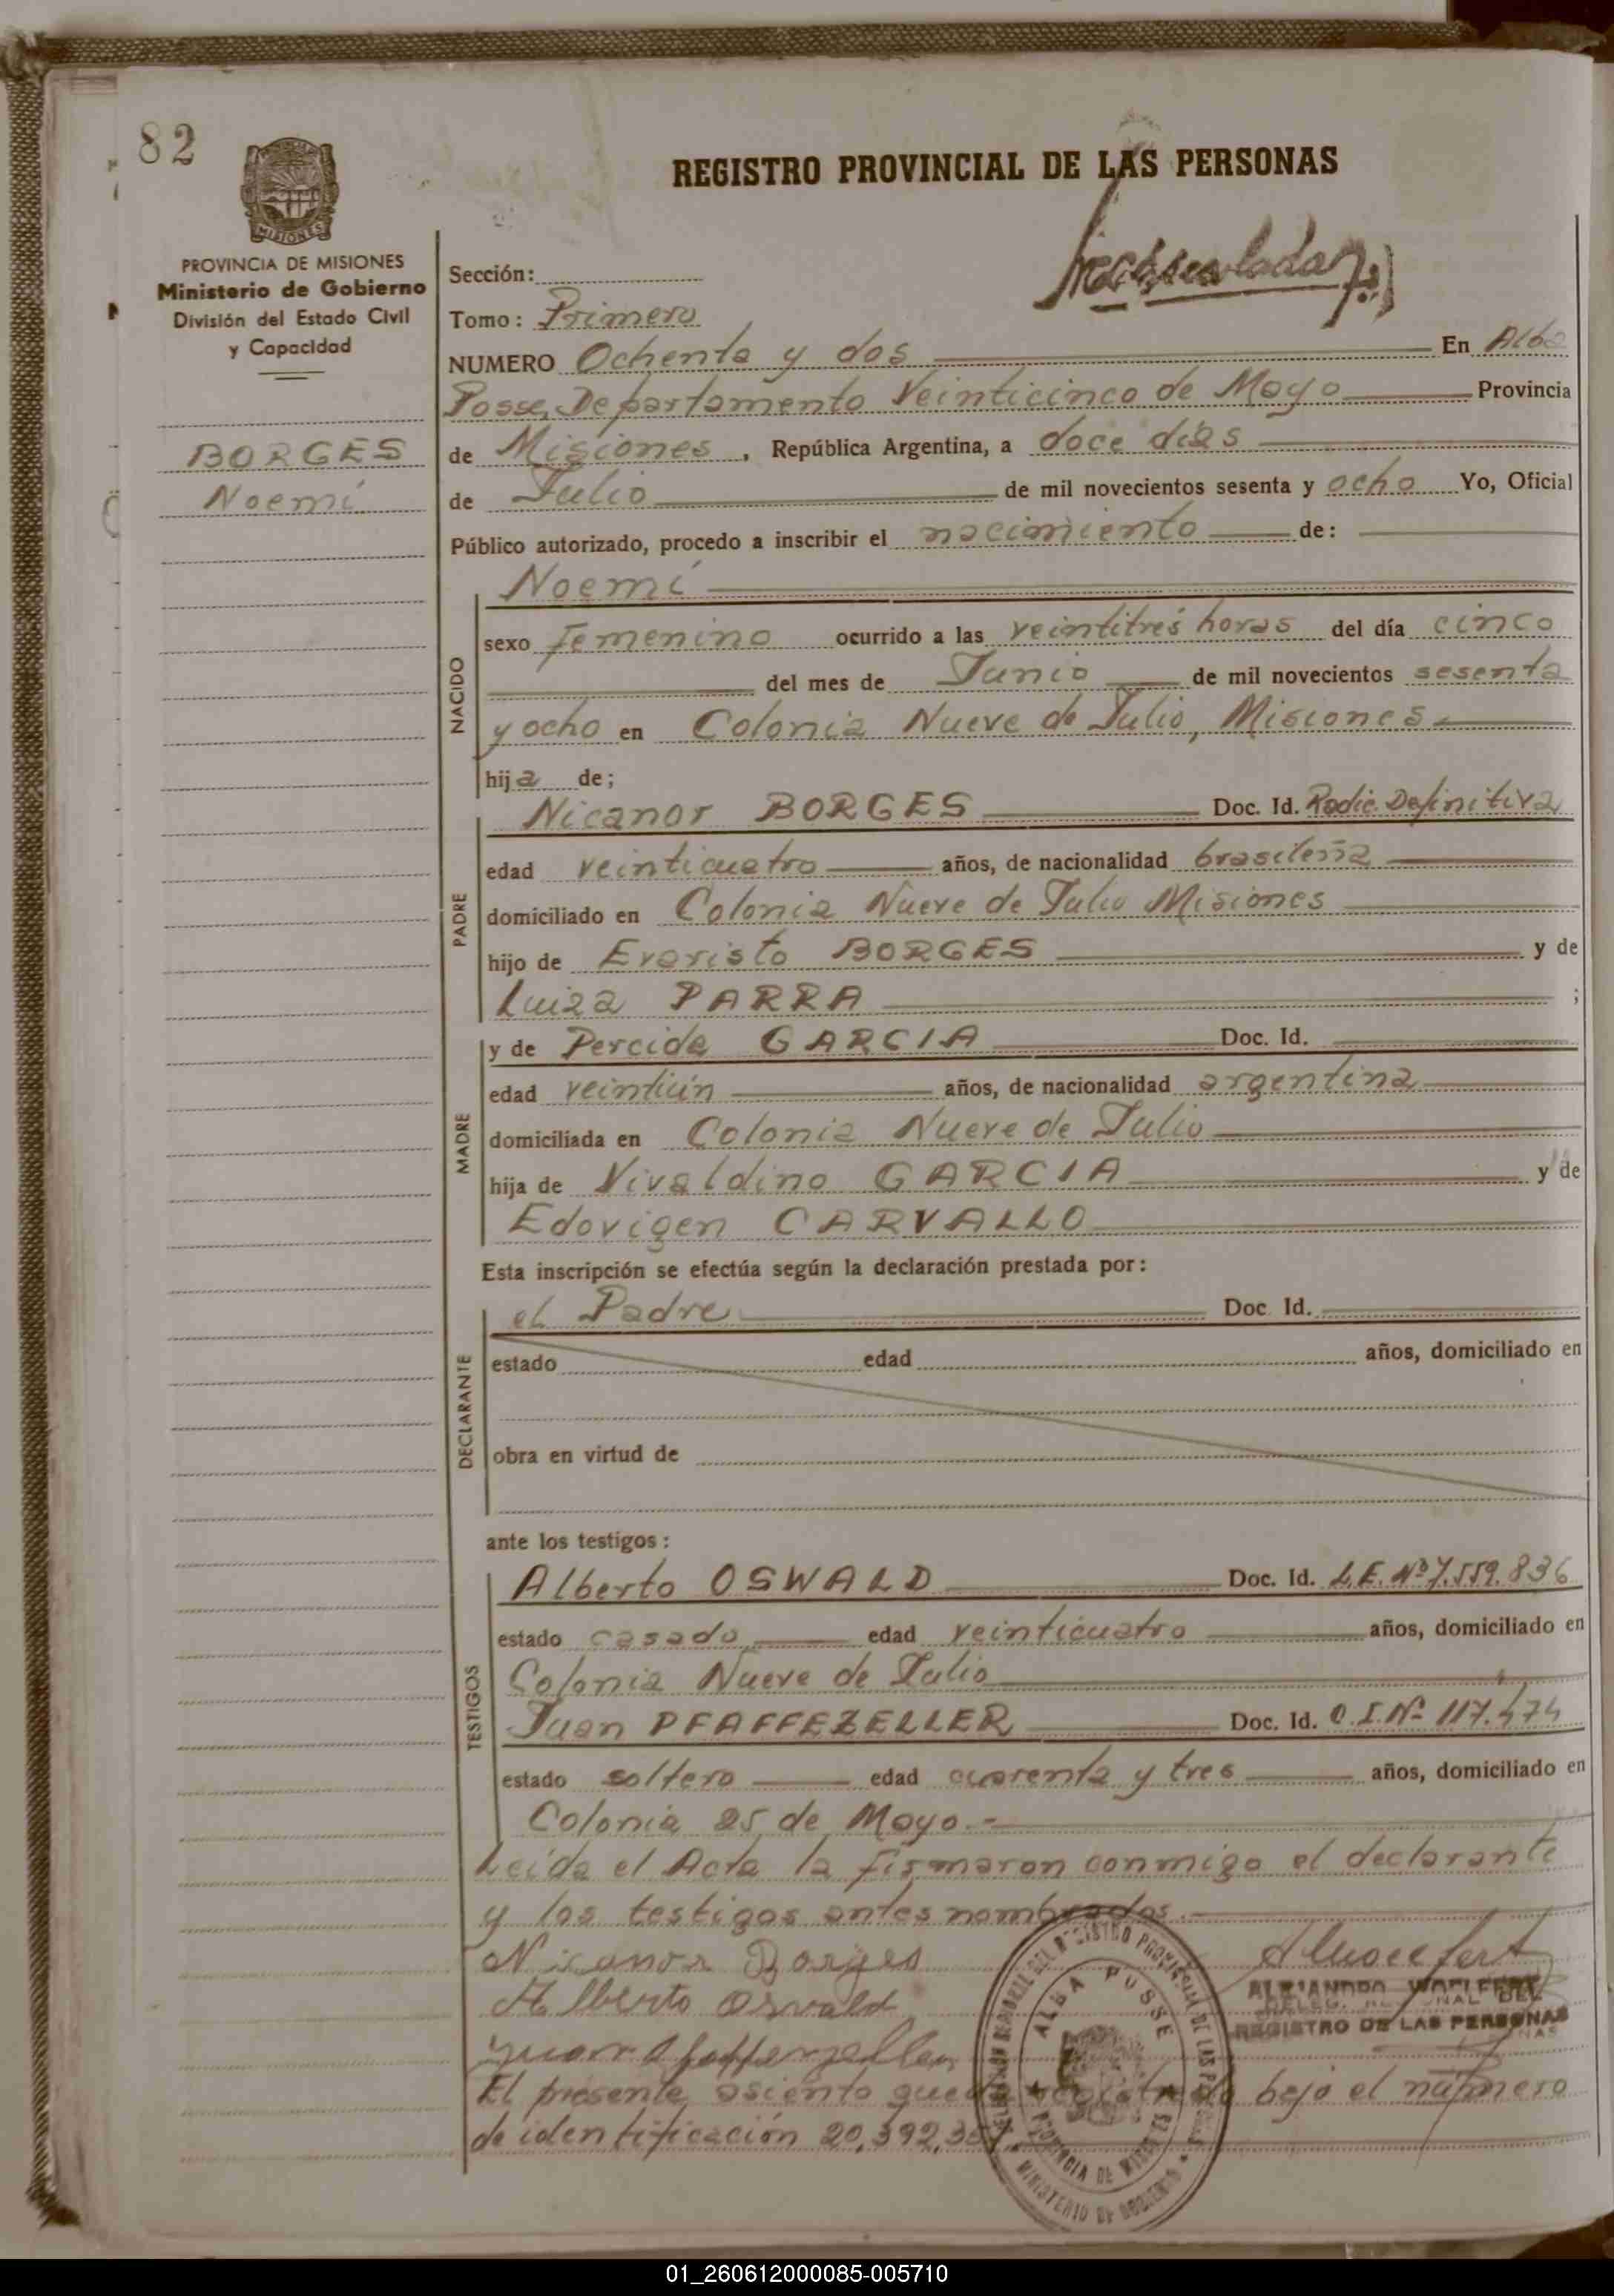 82
REGISTRO PROVINCIAL DE LAS PERSONAS
MISIONES
PROVINCIA DE MISIONES
Ministerio de Gobierno
División del Estado Civil
y Capacidad
BORGES
Noemí
Sección:
Tomo: Primero
NUMERO Ochenta y dos En Alba
Posse, Departamento Veinticinco de Mayo Provincia
de Misiones, República Argentina, a doce días
de Julio de mil novecientos sesenta y ocho Yo, Oficial
Público autorizado, procedo a inscribir el nacimiento de:
NACIDO
Noemí
sexo femenino ocurrido a las veintitrés horas del día cinco
del mes de Junio de mil novecientos sesenta
y ocho en Colonia Nueve de Julio, Misiones.
hija de;
PADRE
Nicanor BORGES Doc. Id. Radic. Definitiva
edad veinticuatro años, de nacionalidad brasileña
domiciliado en Colonia Nueve de Julio Misiones
hijo de Evaristo BORGES y de
Luiza PARRA ;
MADRE
y de Percida GARCIA Doc. Id.
edad veintiún años, de nacionalidad argentina
domiciliada en Colonia Nueve de Julio
hija de Vivaldino GARCIA y de
Edovigen CARVALLO
Esta inscripción se efectúa según la declaración prestada por:
DECLARANTE
el Padre Doc. Id.
estado edad años, domiciliado en
obra en virtud de
ante los testigos:
TESTIGOS
Alberto OSWALD Doc. Id. L.E. Nº 7.559.836
estado casado edad veinticuatro años, domiciliado en
Colonia Nueve de Julio
Juan PFAFFEZELLER Doc. Id. C.I. Nº 117.474
estado soltero edad cuarenta y tres años, domiciliado en
Colonia 25 de Mayo.-
Leída el Acta la firmaron conmigo el declarante
y los testigos antes nombrados.
Nicanor Borges
Alberto Oswald
ALEJANDRO WOELFERT
DELEG. REGIONAL DEL
REGISTRO DE LAS PERSONAS
ALBA POSSE
PROVINCIA DE MISIONES
MINISTERIO DE GOBIERNO
El presente asiento queda registrado bajo el número
de identificación 20.392.
01_260612000085-005710